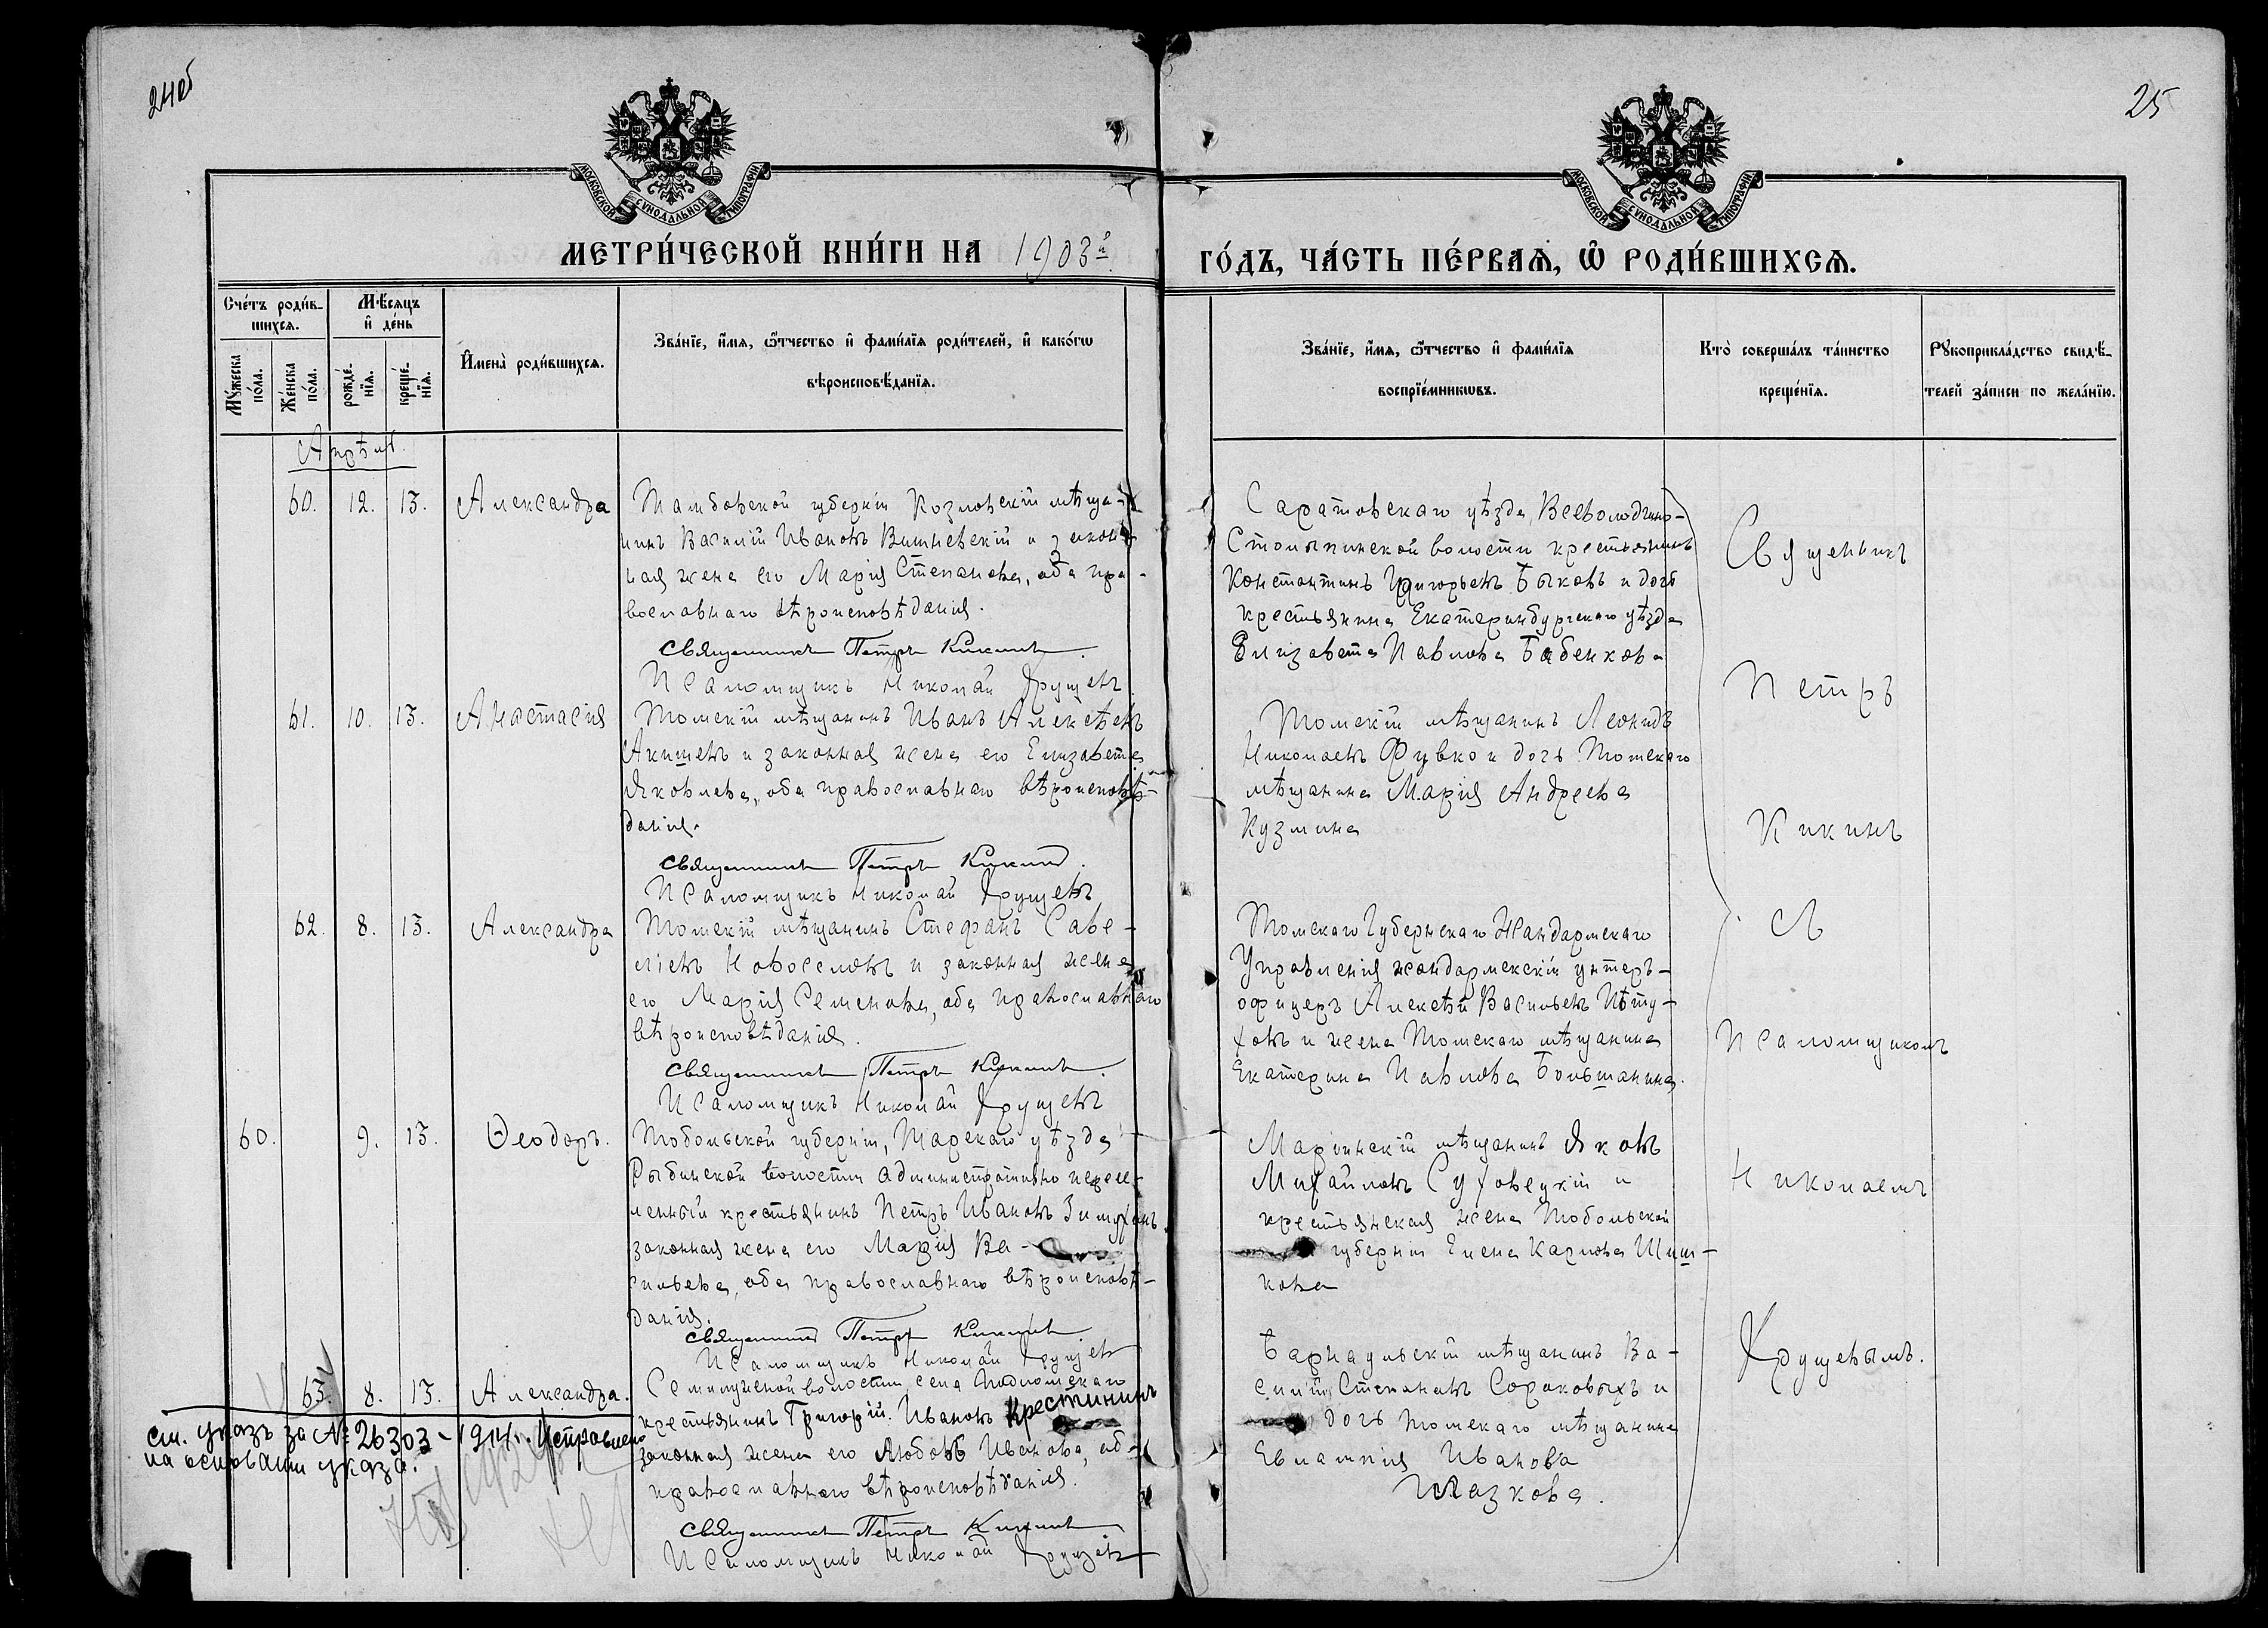 24об
25
МОСКОВСКОЙ СѴНОДАЛЬНОЙ ТИПОГРАФІИ
МОСКОВСКОЙ СѴНОДАЛЬНОЙ ТИПОГРАФІИ
МЕТРИ́ЧЕСКОЙ КНИ́ГИ НА 1903й
ГО́ДЪ, ЧА́СТЬ ПЕ́РВАѦ, Ѡ҆ РОДИ́ВШИХСѦ.
Сче́тъ роди́в-
шихсѧ.
Мѣ́сѧцъ
и҆ де́нь
Мꙋ́жеска
по́ла.
Же́нска
по́ла.
рожде́-
нїѧ.
креще́-
нїѧ.
И҆мена̀ роди́вшихсѧ.
Зва́нїе, и҆́мѧ, ѻ҆́тчество и҆ фами́лїѧ роди́телей, и҆ како́гѡ
вѣроисповѣ́данїѧ.
Зва́нїе, и҆́мѧ, ѻ҆́тчество и҆ фами́лїѧ
воспрїе́мникѡвъ.
Кто̀ соверша́лъ та́инство
креще́нїѧ.
Рꙋкоприкла́дство свидѣ́-
телей за́писи по жела́нїю.
Апрѣль
60. 12. 13. Александра
Тамбовской губерніи Козловскій мѣща-
нинъ Василій Ивановъ Вишневскій и закон-
ная жена его Марія Степанова, оба пра-
вославнаго вѣроисповѣданія.
Священникъ Петръ Кикинъ.
Псаломщикъ Николай Хрущевъ
Саратовскаго уѣзда, Всеволодчино-
Столыпинской волости крестьянинъ
Константинъ Григорьевъ Быковъ и дочь
крестьянина Екатеринбургскаго уѣзда
Елизавета Павлова Бабенкова
61. 10. 13. Анастасія
Томскій мѣщанинъ Иванъ Алексѣевъ
Акишевъ и законная жена его Елизавета
Яковлева, оба православнаго вѣроисповѣ-
данія.
Священникъ Петръ Кикинъ.
Псаломщикъ Николай Хрущевъ
Томскій мѣщанинъ Леонидъ
Николаевъ и дочь Томскаго
мѣщанина Марія Андреева
Кузмина
62. 8. 13. Александра
Томскій мѣщанинъ Стефанъ Саве-
ліевъ Новоселовъ и законная жена
его Марія Семенова, оба православнаго
вѣроисповѣданія.
Священникъ Петръ Кикинъ.
Псаломщикъ Николай Хрущевъ
Томскаго Губернскаго Жандармскаго
Управленія жандармскій унтеръ-
офицеръ Алексѣй Васильевъ Пѣту-
ховъ и жена Томскаго мѣщанина
Екатерина Павлова Большанина.
60. 9. 13. Ѳеодоръ.
Тобольской губерніи, Тарскаго уѣзда
Рыбинской волости административно пересе-
ленный крестьянинъ Петръ Ивановъ
законная жена его Марія Ва-
сильева, оба православнаго вѣроисповѣ-
данія.
Священникъ Петръ Кикинъ
Псаломщикъ Николай Хрущевъ
Маріинскій мѣщанинъ Яковъ
Михайловъ Суховецкій и
крестьянская жена Тобольской
губерніи Елена Карпова Шиш-
кова
63. 8. 13. Александра.
Семилужной волости, села
крестьянинъ Григорій Ивановъ Крестининъ
законная жена его Любовь Иванова, оба
православнаго вѣроисповѣданія.
Священникъ Петръ Кикинъ
Псаломщикъ Николай Хрущевъ
Барнаульскій мѣщанинъ Ва-
силій Степановъ Сороковыхъ и
дочь Томскаго мѣщанина
Евлампія Иванова
Глазкова.
см. указъ за № 26303 - 1914. Исправлено
на основаніи указа.
Священникъ
Петръ
Кикинъ
съ
Псаломщикомъ
Николаемъ
Хрущевымъ.